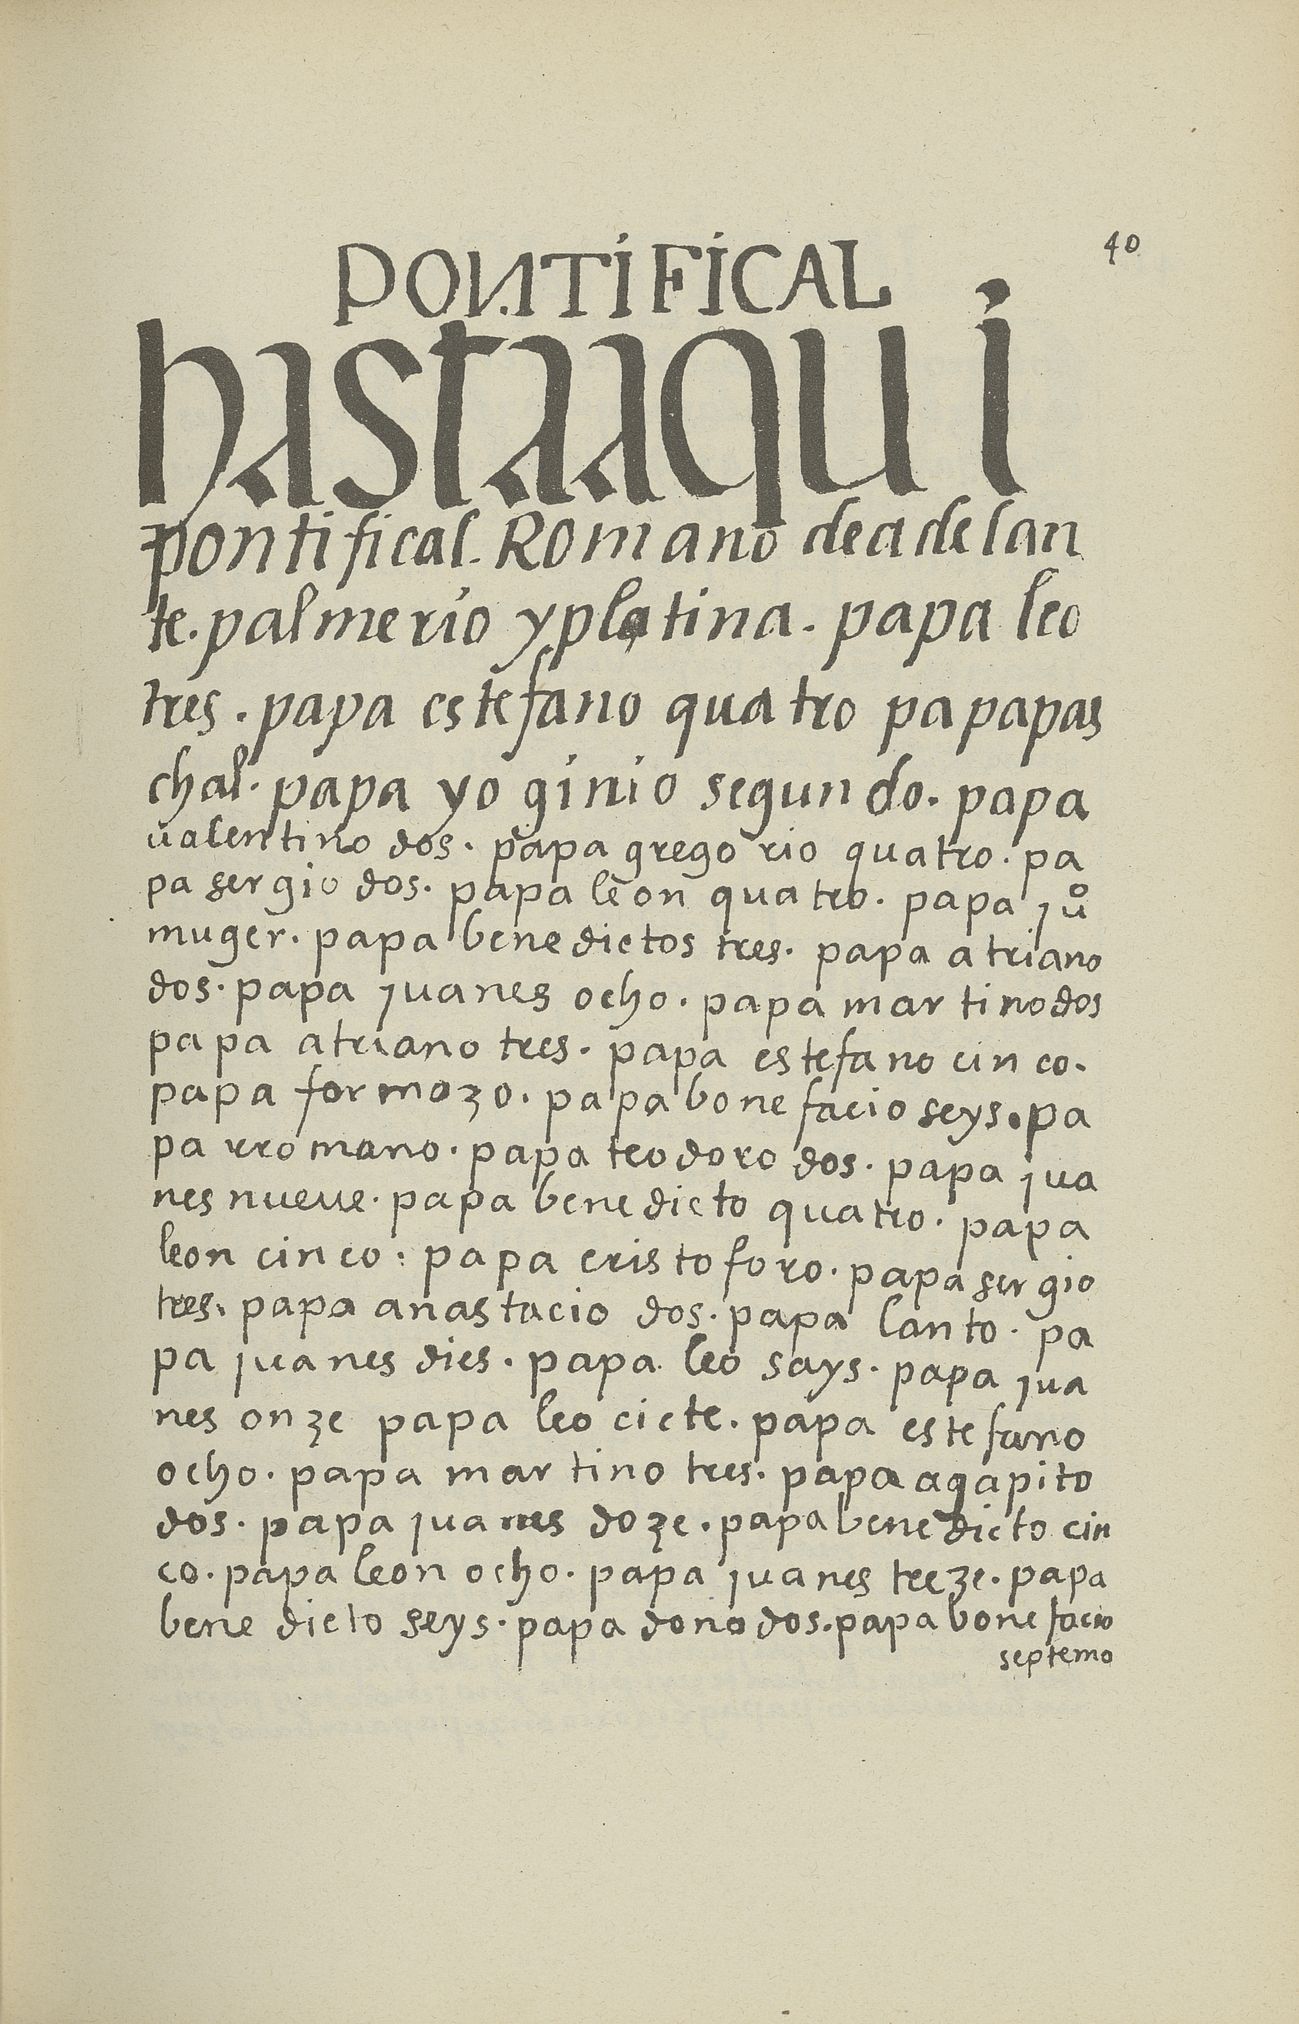 40
PONTIFICAL
hastaaqui
pontifical. Romano deadelan
te. palmerio y platina. papa leo
tres. papa estefano quatro papapas
chal. papa yoginio segundo. papa
ualentino dos. papa gregorio quatro. pa
pa sergio dos. papa leon quatro. papa juº
muger. papa benedictos tres. papa atriano
dos. papa juanes ocho. papa martino dos
papa atriano tres. papa estefano cinco.
papa formozo. papa bonefacio seys. pa
pa rromano. papa teodoro dos. papa jua
nes nueue. papa benedicto quatro. papa
leon cinco: papa cristoforo. papa sergio
tres. papa anastacio dos. papa lanto. pa
pa juanes dies. papa leo says. papa jua
nes onze papa leo ciete. papa estefano
ocho. papa martino tres. papa agapito
dos. papa juanes doze. papa benedicto cin
co. papa leon ocho. papa juanes treze. papa
benedicto seys. papa dono dos. papa bonefacio
septemo